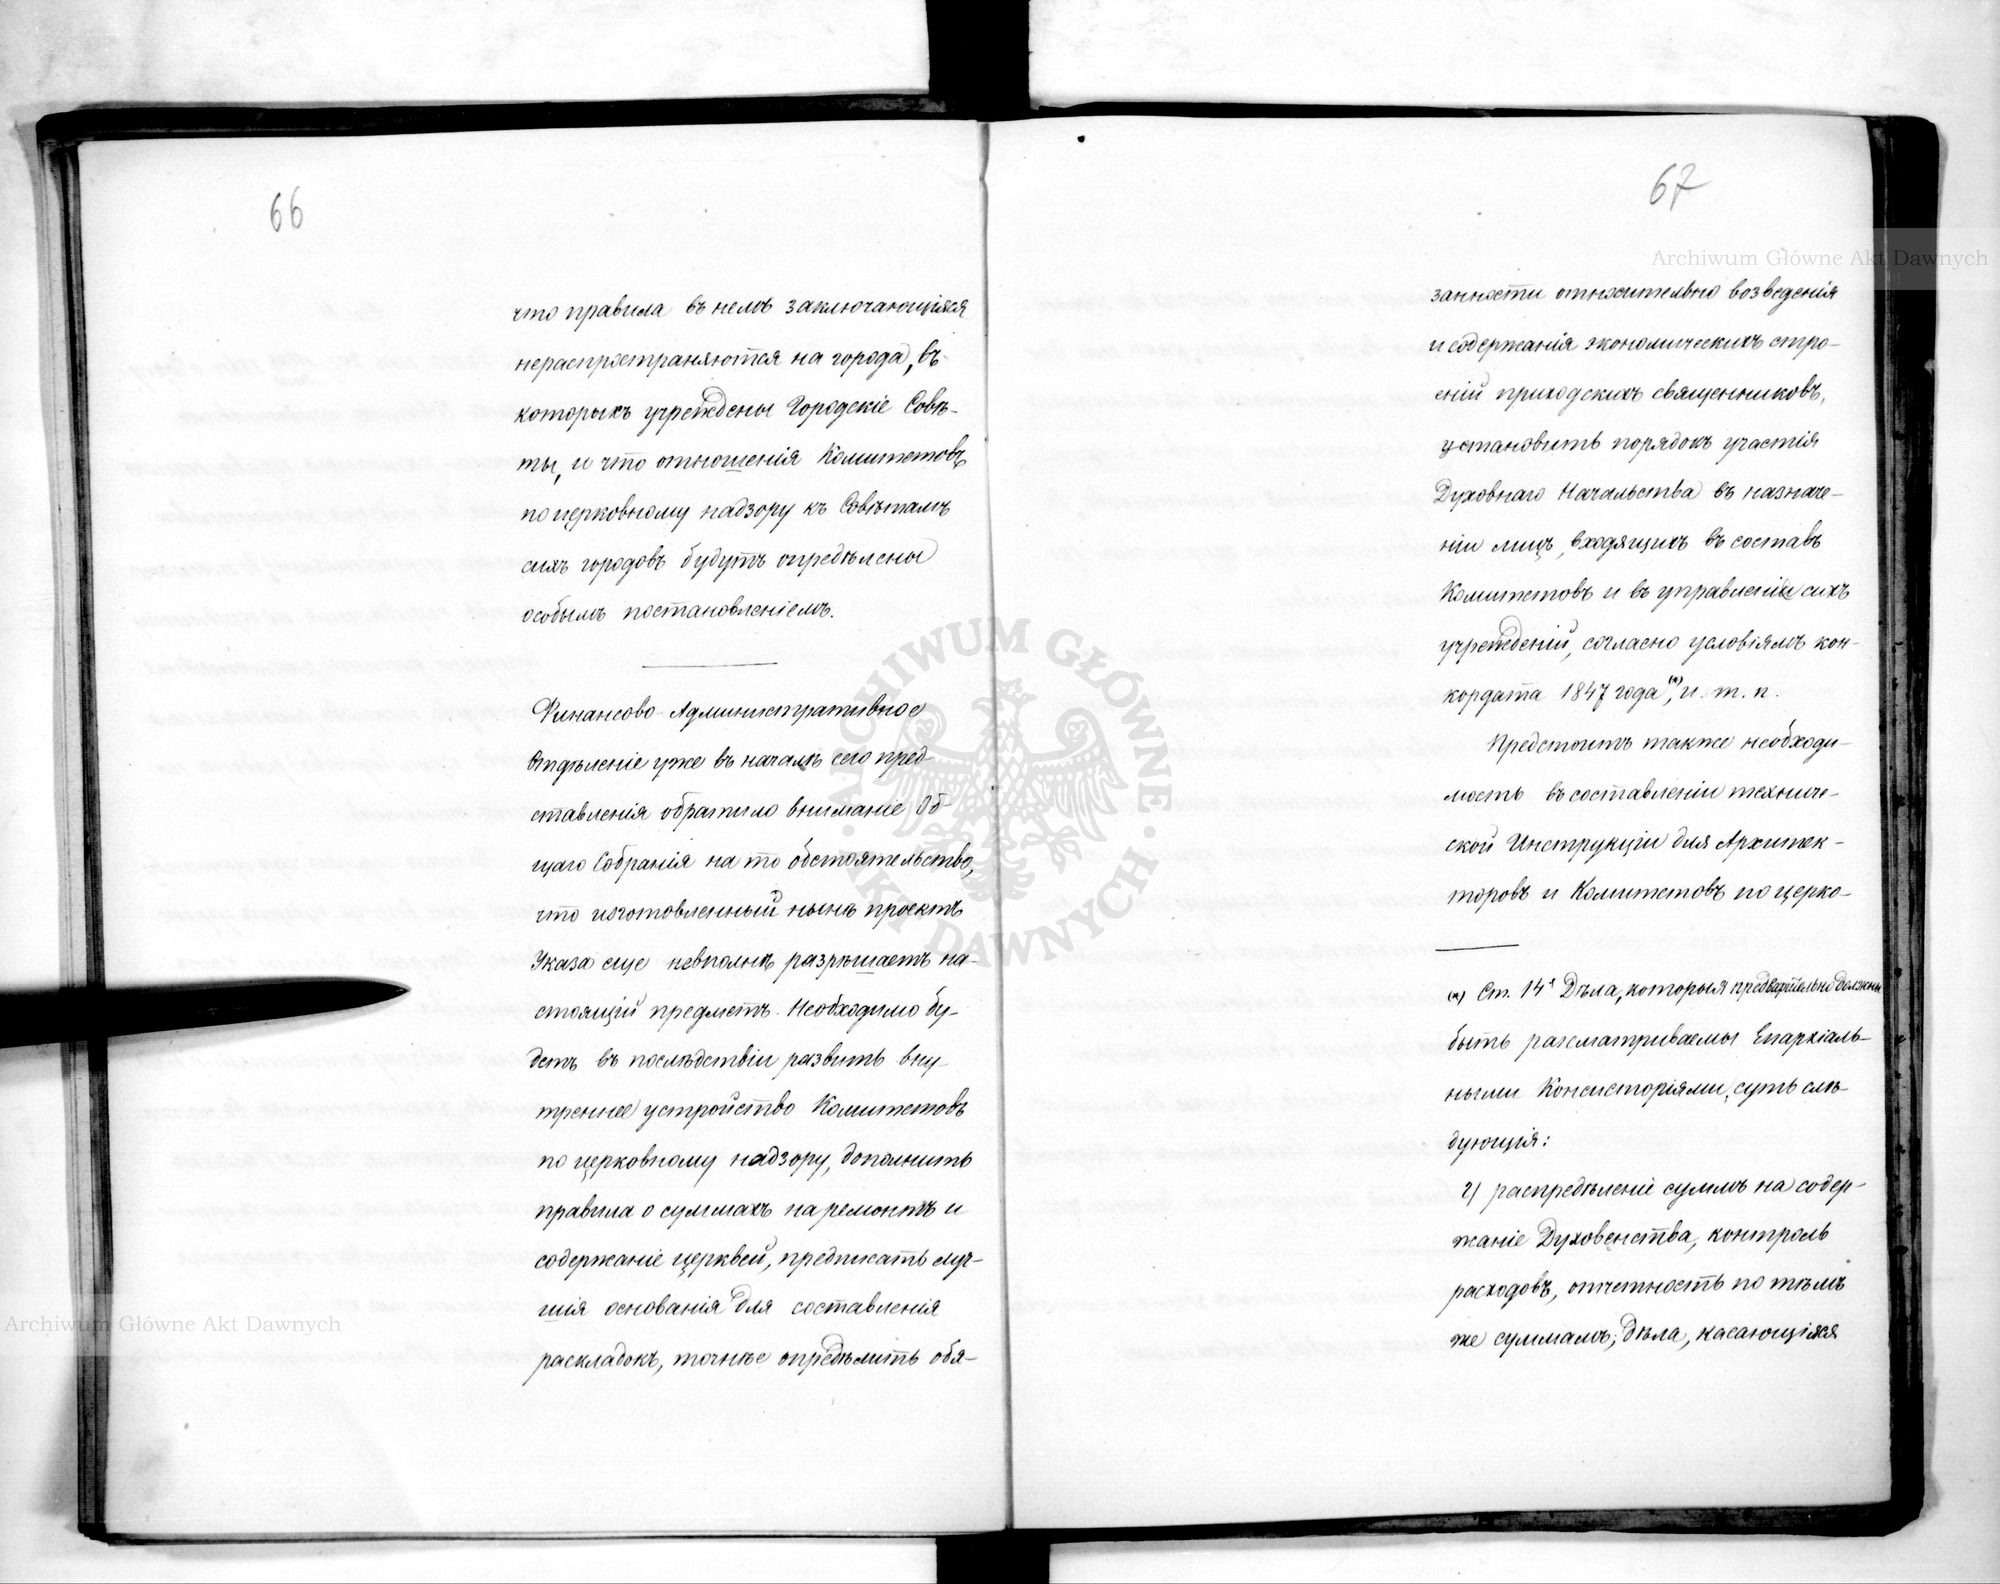 66
что правила въ немъ заключающіяся
нераспространяются на города, въ
которыхъ учреждены Городскіе Совѣ-
ты, и что отношенія Комитетовъ
по церковному надзору къ Совѣтамъ
сихъ городовъ будутъ опредѣлены
особымъ постановленіемъ.
Финансово-Административное
Отдѣленіе уже въ началѣ сего пред-
ставленія обратило вниманіе Об-
щаго Собранія на то обстоятельство,
что изготовленный нынѣ проектъ
Указа еще невполнѣ разрѣшаетъ на-
стоящій предметъ. Необходимо бу-
детъ въ послѣдствіи развить вну-
треннее устройство Комитетовъ
по церковному надзору, дополнить
правила о суммахъ на ремонтъ и
содержаніе церквей, предписать луч-
шія основанія для составленія
раскладокъ, точнѣе опредѣлить обя-
67
занности относительно возведенія
и содержанія экономическихъ стро-
еній приходскихъ священниковъ,
установить порядокъ участія
Духовнаго Начальства въ назначе-
ніи лицъ, входящихъ въ составъ
Комитетовъ и въ управленіи сихъ
учрежденій, согласно условіямъ кон-
кордата 1847 года (*), и. т. п.
Предстоитъ также необходи-
мость въ составленіи техниче-
ской Инструкціи для Архитек-
торовъ и Комитетовъ по церко-
(*) Ст. 14я Дѣла, которыя предварительно должны
быть разсматриваемы Епархіаль-
ными Консисторіями, суть слѣ-
дующія:
г) распредѣленіе суммъ на содер-
жаніе Духовенства, контроль
расходовъ, отчетность по тѣмъ
же суммамъ; дѣла, касающіяся
Archiwum Główne Akt Dawnych
Archiwum Główne Akt Dawnych
ARCHIWUM GŁÓWNE · AKT DAWNYCH ·